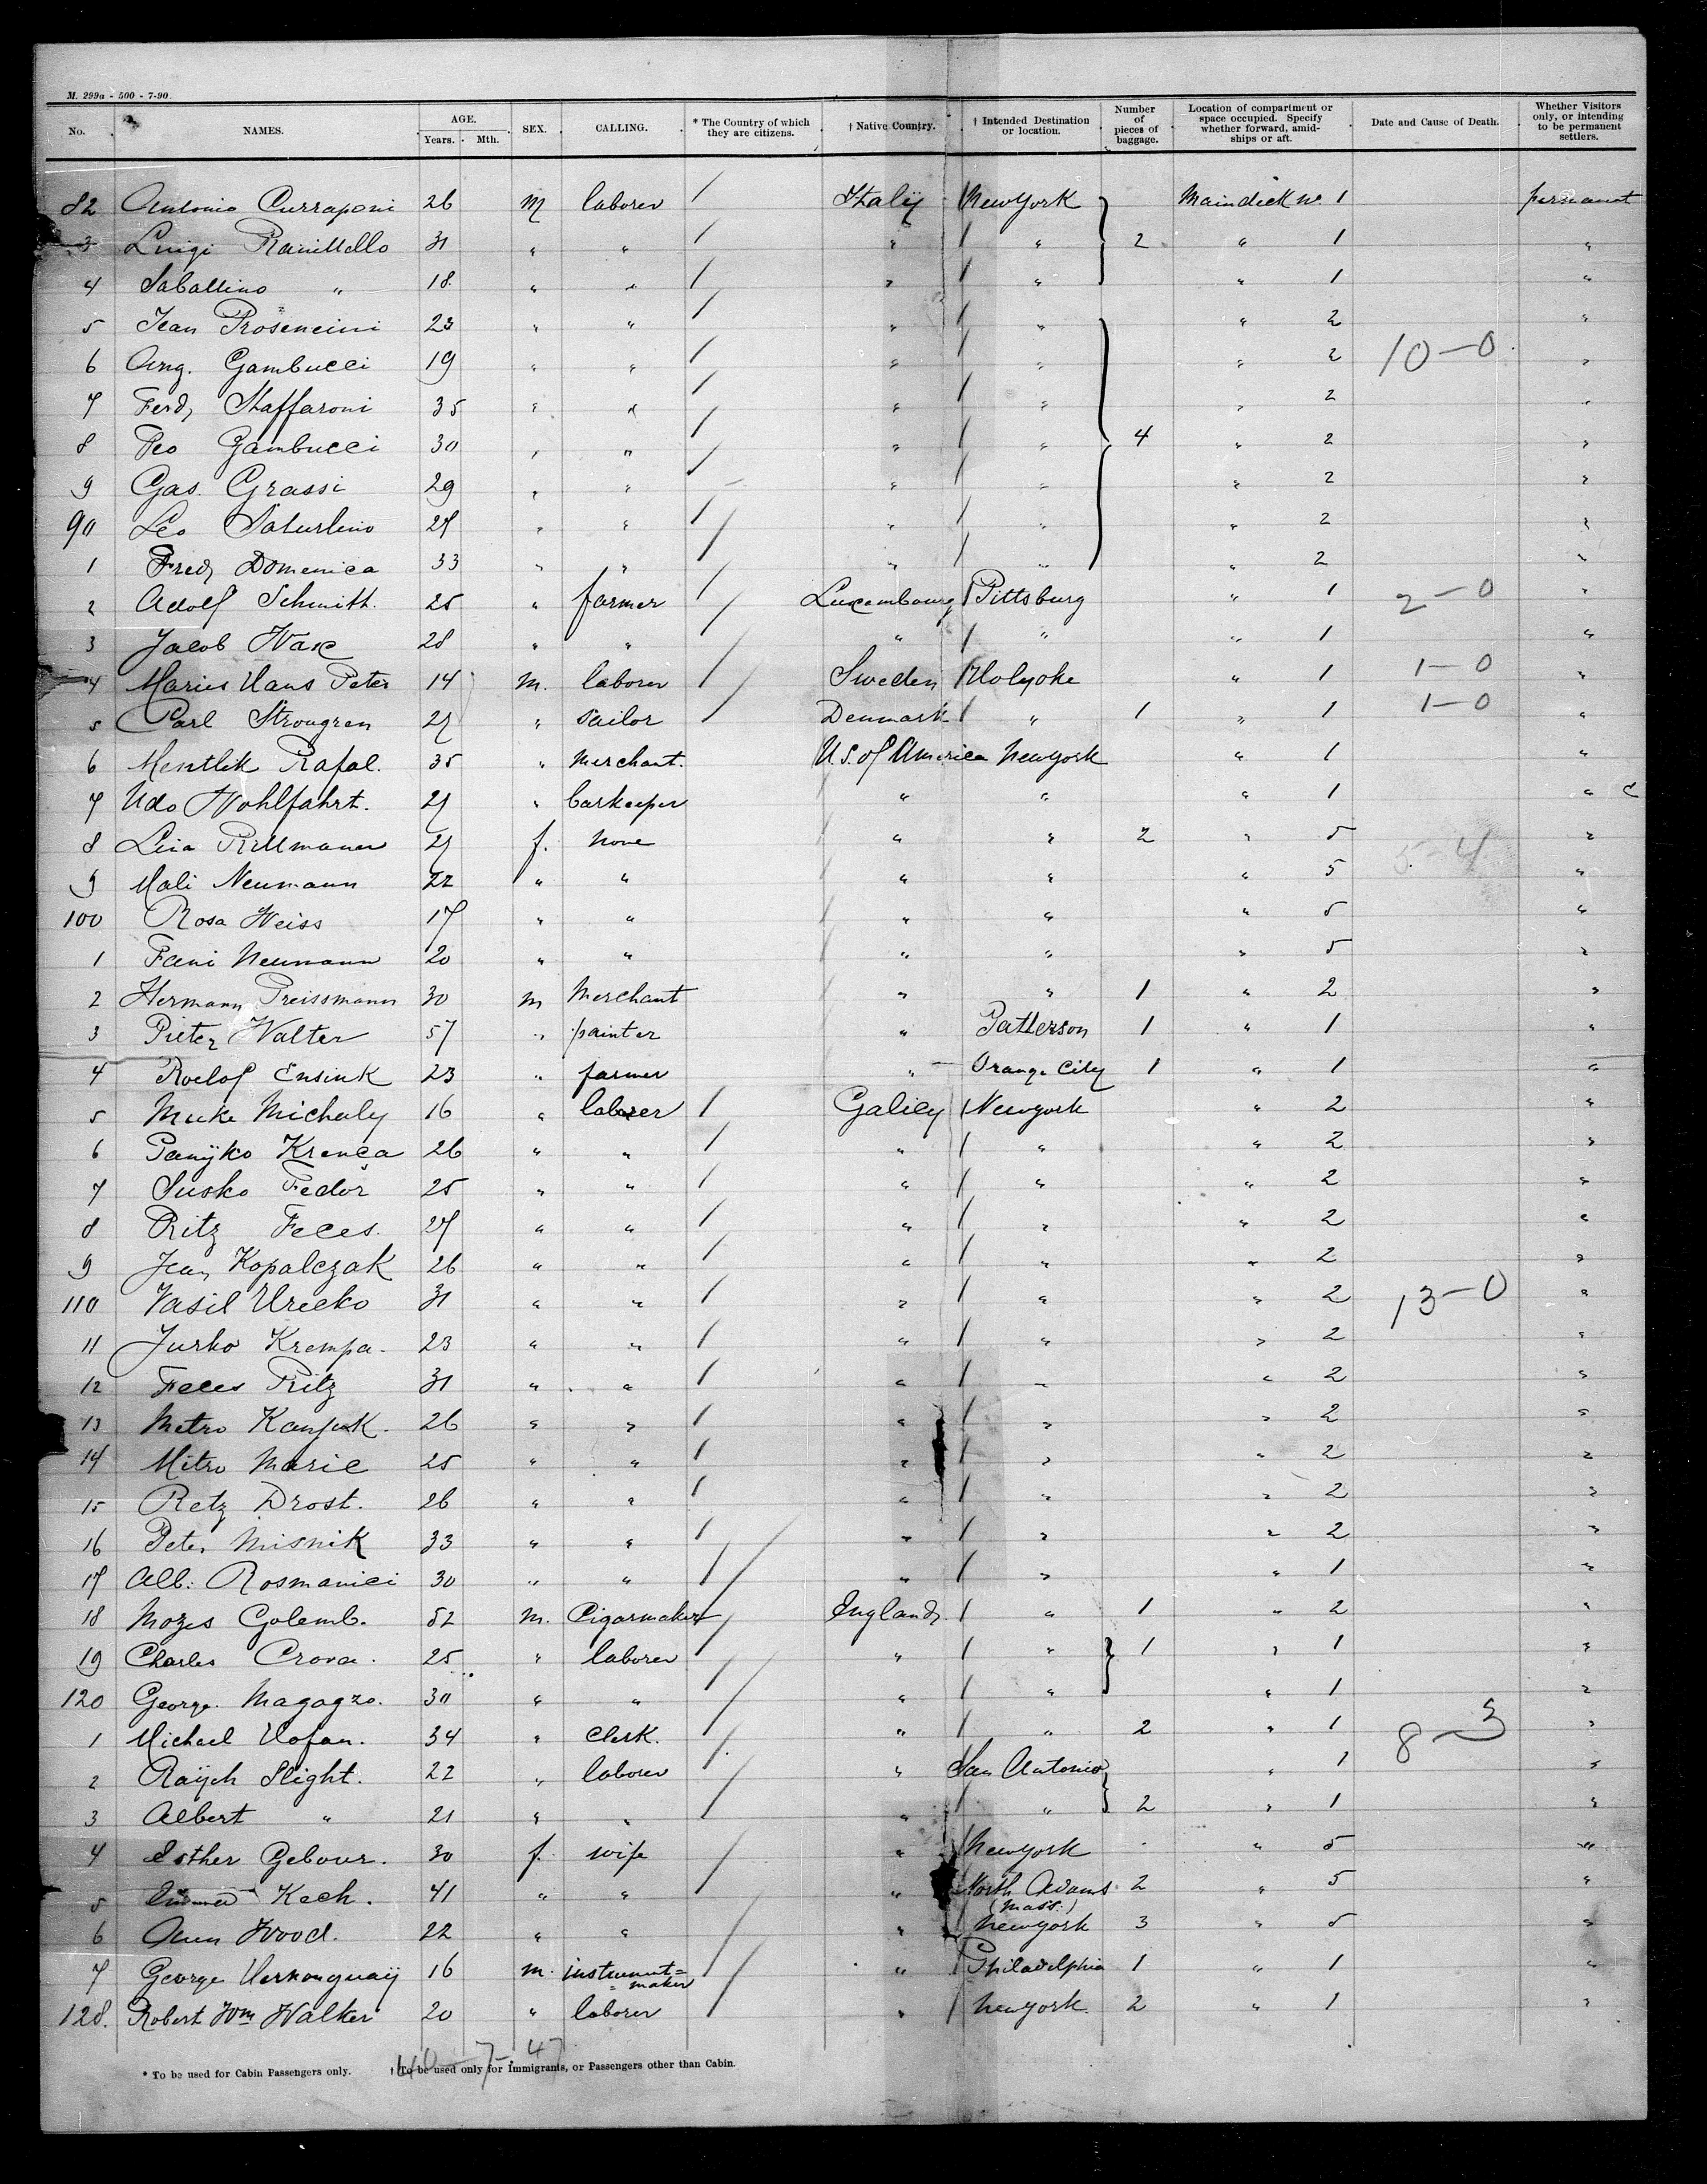 M. 299a - 500 - 7-90.
No. NAMES. AGE. Years. Mth. SEX. CALLING. * The Country of which they are citizens. † Native Country. † Intended Destination or location. Number of pieces of baggage. Location of compartment or space occupied. Specify whether forward, amid-ships or aft. Date and Cause of Death. Whether Visitors only, or intending to be permanent settlers.
82 Antonio Curraponi 26 M laborer / Italy / New York Maindeck No. 1 permanent
3 Luigi 31 " " / " / " 2 " 1 "
4 Saballino " 18 " " / " / " " 1 "
5 Jean Prosencini 23 " " / " / " " 2 "
6 Ang. Gambucci 19 " " / " / " " 2 10-0 "
7 Ferd, Staffaroni 35 " " / " / " " 2 "
8 Feo Gambucci 30 " " / " / " 4 " 2 "
9 Gas. Grassi 29 " " / " / " " 2 "
90 Leo Saturlino 27 " " / " / " " 2 "
1 Fred, Domenica 33 " " / " / " " 2 "
2 Adolf Schmitt. 25 " farmer / Luxembourg / Pittsburg " 1 2-0 "
3 Jacob 28 " " / " / " " 1 "
4 Marius Hans Peter 14 m. laborer / Sweden / Holyoke " 1 1-0 "
5 Carl Strongren 27 " sailor / Denmark / " 1 " 1 1-0 "
6 Mentlik Rafal. 35 " merchant. U.S. of America New York " 1 "
7 Udo Wohlfahrt. 27 " barkeeper " " " 1 " c
8 27 f. none " " 2 " 5 5-4 "
9 Mali Neumann 22 " " " " " 5 "
100 Rosa Weiss 17 " " " " " 5 "
1 Fani Neumann 20 " " " " " 5 "
2 Hermann Preissmann 30 m Merchant " " 1 " 2 "
3 Pieter Walter 57 " painter " Patterson 1 " 1 "
4 Roelof Ensink 23 " farmer " Orange City 1 " 1 "
5 Muke Michaly 16 " laborer / Galicy / New york " 2 "
6 Panÿko Krenca 26 " " / " / " " 2 "
7 Susko Fedor 25 " " / " / " " 2 "
8 Ritz Feces. 27 " " / " / " " 2 "
9 Jean Kopalczak 26 " " / " / " " 2 "
110 Vasil Urecko 31 " " / " / " " 2 13-0 "
11 Jurko Krempa. 23 " " / " / " " 2 "
12 Feces Ritz 31 " " / " / " " 2 "
13 Metro 26 " " / " / " " 2 "
14 Mitro Marie 25 " " / " / " " 2 "
15 Retz Drost. 26 " " / " / " " 2 "
16 Peter Misnik 33 " " / " / " " 2 "
17 Alb: Rosmanici 30 " " / " / " " 1 "
18 Mozes Golemb. 52 m. Cigarmaker / England / " 1 " 2 "
19 Charles Crova. 25 " laborer / " / " 1 " 1 "
120 George Magagzo. 30 " " / " / " " 1 "
1 Michael Hofan. 34 " Clerk. / " / " 2 " 1 8-3 "
2 Raÿch Slight. 22 " laborer / " San Antonio " 1 "
3 Albert " 21 " " / " / " 2 " 1 "
4 Esther Gebour. 30 f. wife / " / New york " 5 "
5 Emma Kech. 41 " " / " North Adams 2 " 5 "
(Mass.)
6 Ann Wood. 22 " " / " / New york 3 " 5 "
7 George 16 m. instrument= / " / Philadelphia 1 " 1 "
= maker
128. Robert Wm Walker 20 " laborer / " / New york. 2 " 1 "
* To be used for Cabin Passengers only. † To be used only for Immigrants, or Passengers other than Cabin.